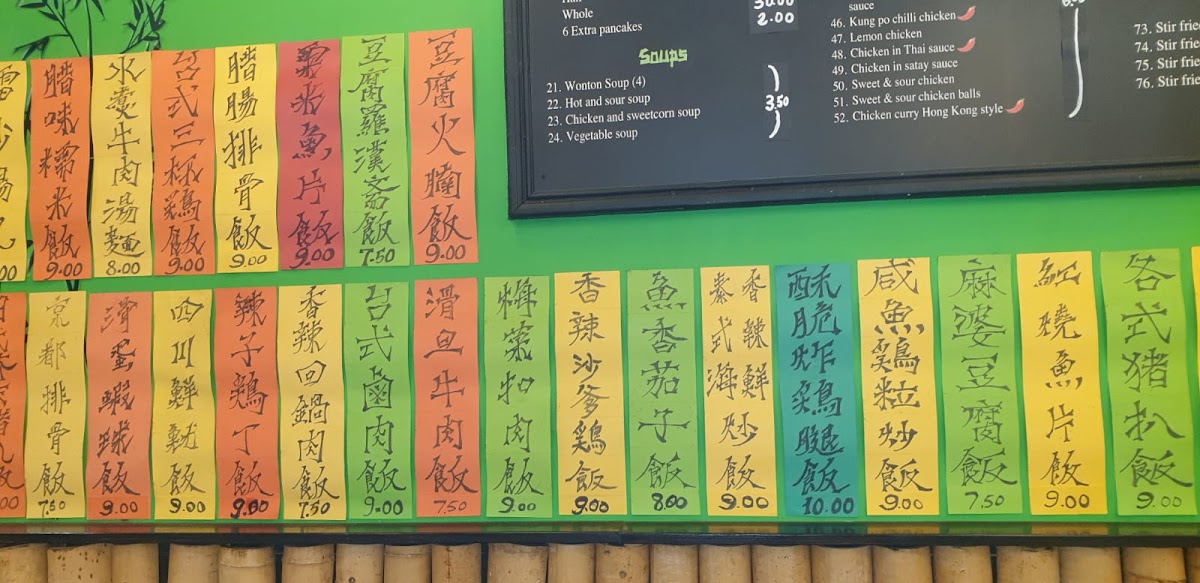 Half
Whole
6 Extra pancakes
30.00
2.00
Soups
21. Wonton Soup (4)
22. Hot and sour soup
23. Chicken and sweetcorn soup
24. Vegetable soup
3.50
sauce
46. Kung po chilli chicken
47. Lemon chicken
48. Chicken in Thai sauce
49. Chicken in satay sauce
50. Sweet & sour chicken
51. Sweet & sour chicken balls
52. Chicken curry Hong Kong style
73. Stir frie
74. Stir frie
75. Stir frie
76. Stir frie
腊味糯米飯
9.00
水煮牛肉湯麵
8.00
台式三杯鷄飯
9.00
腊腸排骨飯
9.00
粟米魚片飯
9.00
豆腐羅漢斋飯
7.50
豆腐火腩飯
9.00
京都排骨飯
7.50
滑蛋蝦球飯
9.00
四川鮮魷飯
9.00
辣子鷄丁飯
9.00
香辣回鍋肉飯
7.50
台式鹵肉飯
9.00
滑旦牛肉飯
7.50
梅菜扣肉飯
9.00
香辣沙爹鷄飯
9.00
魚香茄子飯
8.00
香辣泰式海鮮炒飯
9.00
酥脆炸鷄腿飯
10.00
咸魚鷄粒炒飯
9.00
麻婆豆腐飯
7.50
紅燒魚片飯
9.00
各式猪扒飯
9.00